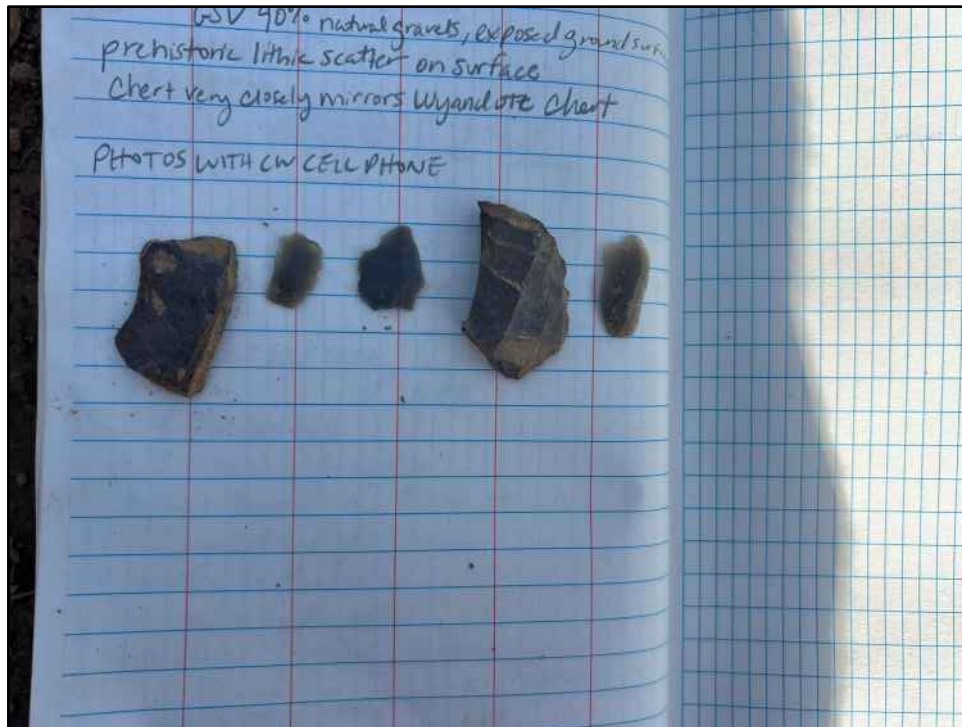 GSV 90% natural gravels, exposed ground surf
prehistoric lithic scatter on surface
Chert very closely mirrors Wyandotte Chert
PHOTOS WITH CW CELL PHONE